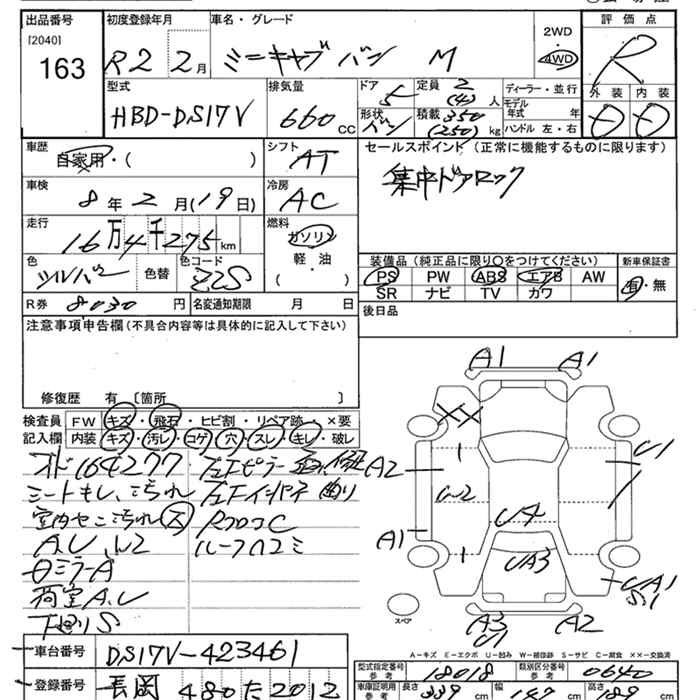 出品番号
[2040]
163
初度登録年月
R2 2月
車名・グレード
ミニキャブ バン M
2WD
・
4WD
評価点
R
外装 内装
D D
型式
HBD-DS17V
排気量
660 CC
ドア
5
形状
バン
定員 2(4)人
積載 350(250)kg
ディーラー・並行
モデル年式 年
ハンドル 左・右
車歴
自家用・( )
シフト
AT
セールスポイント (正常に機能するものに限ります)
集中ドアロック
車検
8年2月(19日)
冷房
AC
走行
16万4千275km
燃料
ガソリン
軽・油
( ・ )
色
シルバー
色替
色コード
Z2S
装備品 (純正品に限り○をつけてください)
PS PW ABS エアB AW
SR ナビ TV カワ
新車保証書
有・無
R券 8030円
名変通知期限 月 日
後日品
注意事項申告欄 (不具合内容等は具体的に記入して下さい)
修復歴 有 [箇所 ]
検査員記入欄
FW キズ・飛石・ヒビ割・リペア跡・×要
内装 キズ・汚れ・コゲ・穴・スレ・キレ・破レ
オド164277
シートモレ、汚れ
室内ヤニ汚れ ス
A.U.W2
ミラーA
荷室A.U
下廻りS
左Fピラー
左Fインサイド 曲り
RコアC
ルーフハコミ
A1 A1
XX
1
U1
A2
W2
U4
A1
1
UA3
UA1
S1
A3
U1
A2
スペア
A-キズ E-エクボ U-凹み W-補修跡 S-サビ C-腐食 ××-交換済
車台番号 DS17V-423461
登録番号 長岡 480 た 2012
型式指定番号 参考 18018
類別区分番号 参考 0640
車庫証明用 参考
長さ 339 cm
幅 147 cm
高さ cm